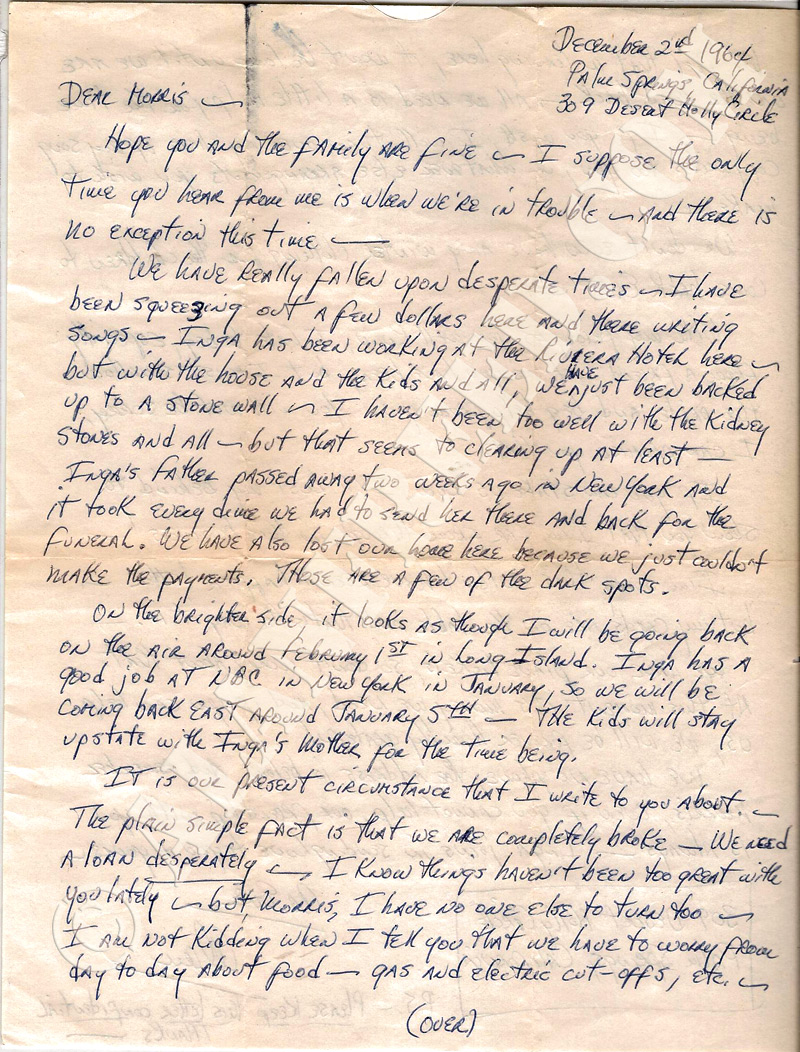 December 2nd 1964
Palm Springs, California
309 Desert Holly Circle
Dear Morris —
Hope you and the family are fine — I suppose the only
time you hear from me is when we're in trouble — and there is
no exception this time —
We have really fallen upon desperate times — I have
been squeezing out a few dollars here and there writing
songs — Inga has been working at the Riviera Hotel here —
but with the house and the kids and all, we have just been backed
up to a stone wall — I haven't been too well with the kidney
stones and all — but that seems to clearing up at least —
Inga's father passed away two weeks ago in New York and
it took every dime we had to send her there and back for the
funeral. We have also lost our home here because we just couldn't
make the payments. Those are a few of the dark spots.
On the brighter side, it looks as though I will be going back
on the air around February 1st in Long Island. Inga has a
good job at NBC in New York in January, so we will be
coming back East around January 5th — The kids will stay
upstate with Inga's mother for the time being.
It is our present circumstance that I write to you about. —
The plain simple fact is that we are completely broke — We need
a loan desperately — I know things haven't been too great with
you lately — but, Morris, I have no one else to turn too —
I am not kidding when I tell you that we have to worry from
day to day about food — gas and electric cut-offs, etc. —
(over)
Please keep this letter confidential
Thanks